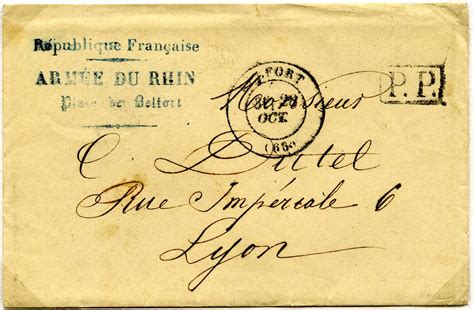 République Française
ARMÉE DU RHIN
Place de Belfort
FORT
OCT.
P.P.
Monsieur
C. Dutel
Rue Impériale 6
Lyon